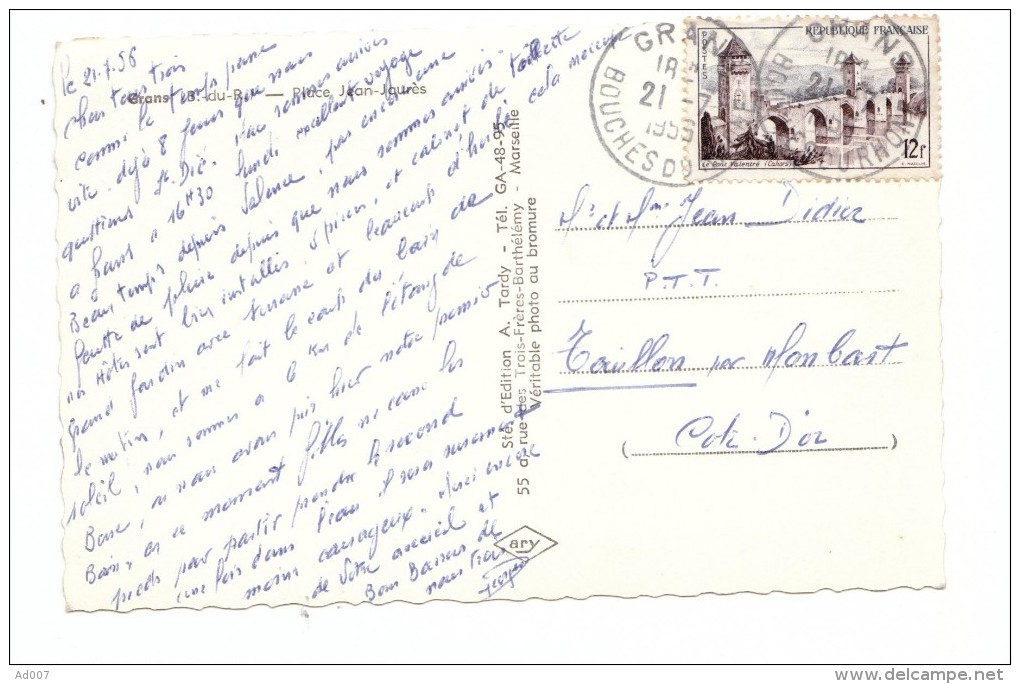 Le 21.7.56
Chers tous trois
Grans (B.-du-R.) — Place Jean-Jaurès
comme le temps passe
vite déjà 8 jours que nous
quittions St. Dié. Nous sommes arrivés
à Grans à 16H30 lundi excellent voyage
Beau temps depuis Valence, pas encore une
goutte de pluie depuis que nous sommes arrivés
nos Hôtes sont bien installés. 3 pièces, et cabinet de toilette
grand jardin avec terrasse et beaucoup d'herbe cela m'occupe
le matin, et me fait le cou du bain de
soleil, nous sommes à 6 Km de l'étang de
Berre, où nous avons pris hier notre premier
Bain, en ce moment filles me casse les
pieds pour partir prendre le second
une fois dans l'eau il sera surement
moins courageux. Merci encore
de votre accueil et
Bons Baisers de
nous trois
Georges
Sté. d'Edition A. Tardy - Tél. GA-48-95
55 a, rue des Trois-Frères-Barthélémy - Marseille
Véritable photo au bromure
ary
GRANS
18
21 -7
1956
BOUCHES DU RHONE
POSTES
REPUBLIQUE FRANÇAISE
Le Pont Valentré (Cahors)
12f
GRANS
18
21
BOUCHES DU RHONE
Mr et Mme Jean Didier
P.T.T.
Touillon par Montbart
(Côte-D'Or)
Ad007
delcampe.net